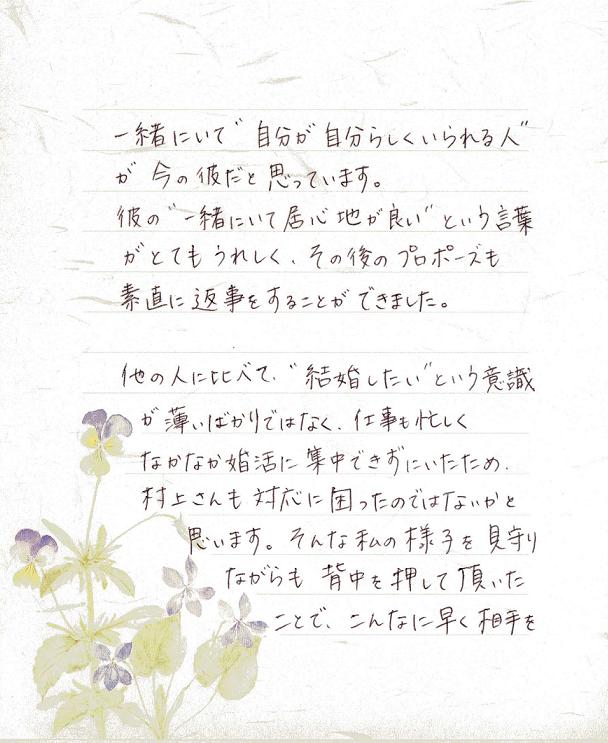 一緒にいて“自分が自分らしくいられる人”
が今の彼だと思っています。
彼の“一緒にいて居心地が良い”という言葉
がとてもうれしく、その後のプロポーズも
素直に返事をすることができました。
他の人に比べて、“結婚したい”という意識
が薄いばかりではなく、仕事も忙しく
なかなか婚活に集中できずにいたため、
村上さんも対応に困ったのではないかと
思います。そんな私の様子を見守り
ながらも背中を押して頂いた
ことで、こんなに早く相手を